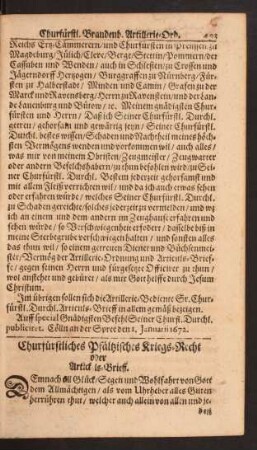 Churfürstl. Brandenb. Artillerie-Ord.
Reichs Ertz-Cämmerern/ und Churfürsten in Preussen zu
Magdeburg/ Jülich/ Cleve/ Berge/ Stettin/ Pommern/ der
Cassuben und Wenden/ auch in Schlesien/ zu Crossen und
Jägerndorff Hertzogen/ Burggraffen zu Nürnberg/ Für-
sten zu Halberstadt/ Minden und Camin/ Grafen zu der
Marck und Ravensberg/ Herrn zu Ravenstein/ und der Lande
Lauenburg und Bütow/ ec. Meinem gnädigsten Chur-
fürsten und Herrn/ Daß ich Seiner Churfürstl. Durchl.
getreu/ gehorsam und gewärtig seyn/ Seiner Churfürstl.
Durchl. bestes wissen/ Schaden und Nachtheil meines höchs-
ten Vermögens wenden und vorkommen wil/ auch alles/
was mir von meinem Obristen/ Zeugmeister/ Zeugwarter
oder andern Befehlshabern/ zu thun befohlen wird/ zu Sei-
ner Churfürstl. Durchl. Besten iederzeit gehorsamst und
mit allem Fleiß verrichten wil/ und da ich auch etwas sehen
oder erfahren würde/ welches Seiner Churfürstl. Durchl.
zu Schaden gereichte/ solches iederzeit vermelden/ und wo
ich an einem und dem andern im Zeughause erfahren und
sehen würde/ so Verschwiegenheit erfodern/ dasselbe biß in
meine Sterbegrube verschwiegen halten/ und sonsten alles
das thun wil/ so einem getreuen Diener und Büchsenmei-
ster/ Vermög der Artillerie-Ordnung und Articuls-Brief-
fes/ gegen seinen Herrn und fürgesetzte Officirer zu thun/
wol anstehet und gebüret/ als mir Gott helffe durch Jesum
Christum.
Im übrigen sollen sich die Artillerie-Bediente Sr. Chur-
fürstl. Durchl. Articuls-Brieff in allem gemäß bezeigen.
Auff special Gnädigsten Befehl Seiner Churf. Durchl.
publiciret. Cölln an der Spree den 1. Januarii 1672.
Churfürstliches Pfältzisches Kriegs-Recht
oder
Articuls-Brieff.
DEmnach all Glück/ Segen und Wohlfahrt von Gott
dem Allmächtigen/ als vom Uhrheber alles Guten
herrühren thut/ welcher auch allein von allen und je-